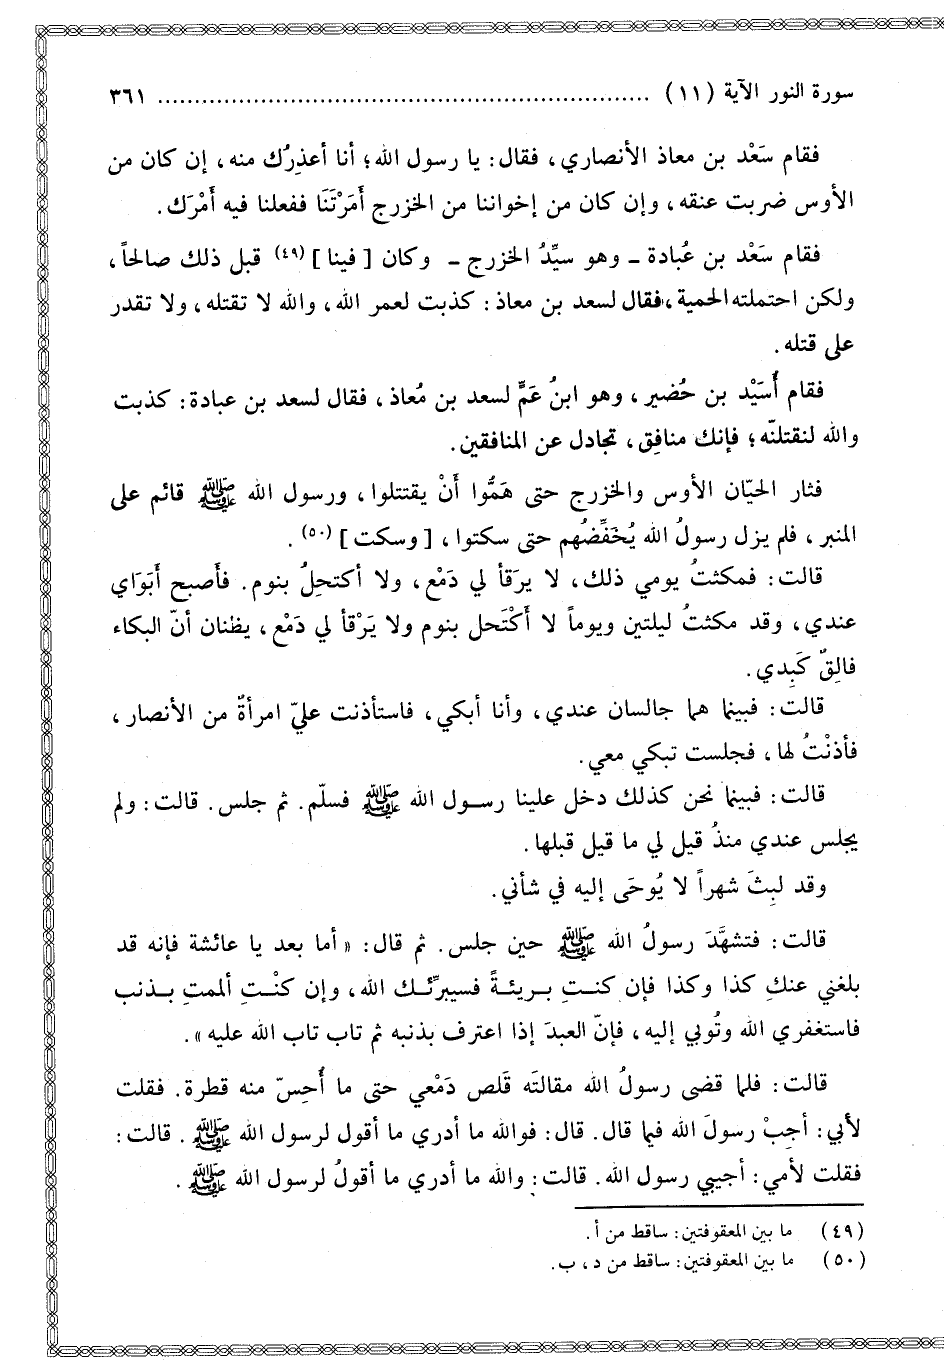 سورة النور الآية (١١) ................................................................ ٣٦١
فقام سَعْد بن معاذ الأنصاري، فقال: يا رسول الله؛ أنا أعذِرُك منه، إن كان من
الأوس ضربت عنقه، وإن كان من إخواننا من الخزرج أَمَرْتَنَا ففعلنا فيه أَمْرَك.
فقام سَعْد بن عُبادة ـ وهو سيِّدُ الخزرج ـ وكان [فينا] (٤٩) قبل ذلك صالحاً،
ولكن احتملته الحمية، فقال لسعد بن معاذ: كذبت لعمر الله، والله لا تقتله، ولا تقدر
على قتله.
فقام أُسَيْد بن حُضير، وهو ابنُ عَمٍّ لسعد بن مُعاذ، فقال لسعد بن عبادة: كذبت
والله لنقتلنّه؛ فإنك منافق، تجادل عن المنافقين.
فثار الحيّان الأوس والخزرج حتى هَمُّوا أَنْ يقتتلوا، ورسول الله ﷺ قائم على
المنبر، فلم يزل رسولُ الله يُخَفِّضُهم حتى سكتوا، [وسكت] (٥٠).
قالت: فمكثتُ يومي ذلك، لا يرَقأ لي دَمْع، ولا أكتحلُ بنوم. فأصبح أَبَوَاي
عندي، وقد مكثتُ ليلتين ويوماً لا أَكْتَحل بنوم ولا يَرْقأ لي دَمْع، يظنان أنّ البكاء
فالِقٌ كَبِدي.
قالت: فبينما هما جالسان عندي، وأنا أبكي، فاستأذنت عليّ امرأةٌ من الأنصار،
فأذنْتُ لها، فجلست تبكي معي.
قالت: فبينما نحن كذلك دخل علينا رسول الله ﷺ فسلّم. ثم جلس. قالت: ولم
يجلس عندي منذُ قيل لي ما قيل قبلها.
وقد لبِثَ شهراً لا يُوحَى إليه في شأني.
قالت: فتشهَّدَ رسولُ الله ﷺ حين جلس. ثم قال: «أما بعد يا عائشة فإنه قد
بلغني عنكِ كذا وكذا فإن كنتِ بريئةً فسيبرِّئك الله، وإن كنْتِ ألممتِ بذنب
فاستغفري الله وتُوبي إليه، فإنّ العبدَ إذا اعترف بذنبه ثم تاب تاب الله عليه».
قالت: فلما قضى رسولُ الله مقالتَه قَلص دَمْعي حتى ما أُحِسّ منه قطرة. فقلت
لأبي: أجِبْ رسولَ الله فيما قال. قال: فوالله ما أدري ما أقول لرسول الله ﷺ. قالت:
فقلت لأمي: أجيبي رسول الله. قالت: والله ما أدري ما أقولُ لرسول الله ﷺ.
(٤٩) ما بين المعقوفتين: ساقط من أ.
(٥٠) ما بين المعقوفتين: ساقط من د، ب.